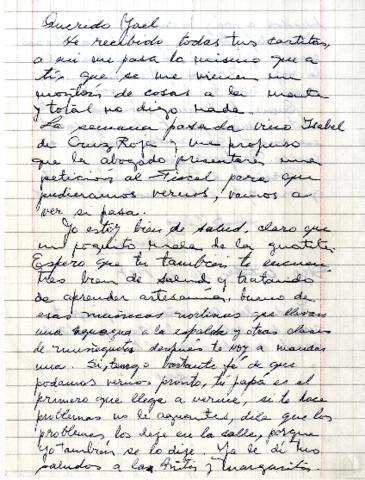 Querido Yael
He recibido todas tus cartitas,
a mi me pasa lo mismo que a
ti, que se me vienen un
montón de cosas a la mente
y total no digo nada.
La semana pasada vino Isabel
de Cruz Roja y me propuso
que la abogado presentara una
petición al Fiscal para que
pudieramos vernos, vamos a
ver si pasa.
Yo estoy bien de salud, claro que
un poquito mala de la guatita.
Espero que tu también te encuen
tres bien de salud y tratando
de aprender artesanía, bueno de
esas muñecas nortinas que llevan
una guagua a la espalda y otras clases
de muñequitas después te voy a mandar
una. Si, tengo bastante fé de que
podamos vernos pronto, tu papá es el
primero que llega a verme, si te hace
problemas no le aguantes, dile que los
problemas los deje en la calle, porque
yo también se lo dije. Ya le di tus
saludos a la y Margarita